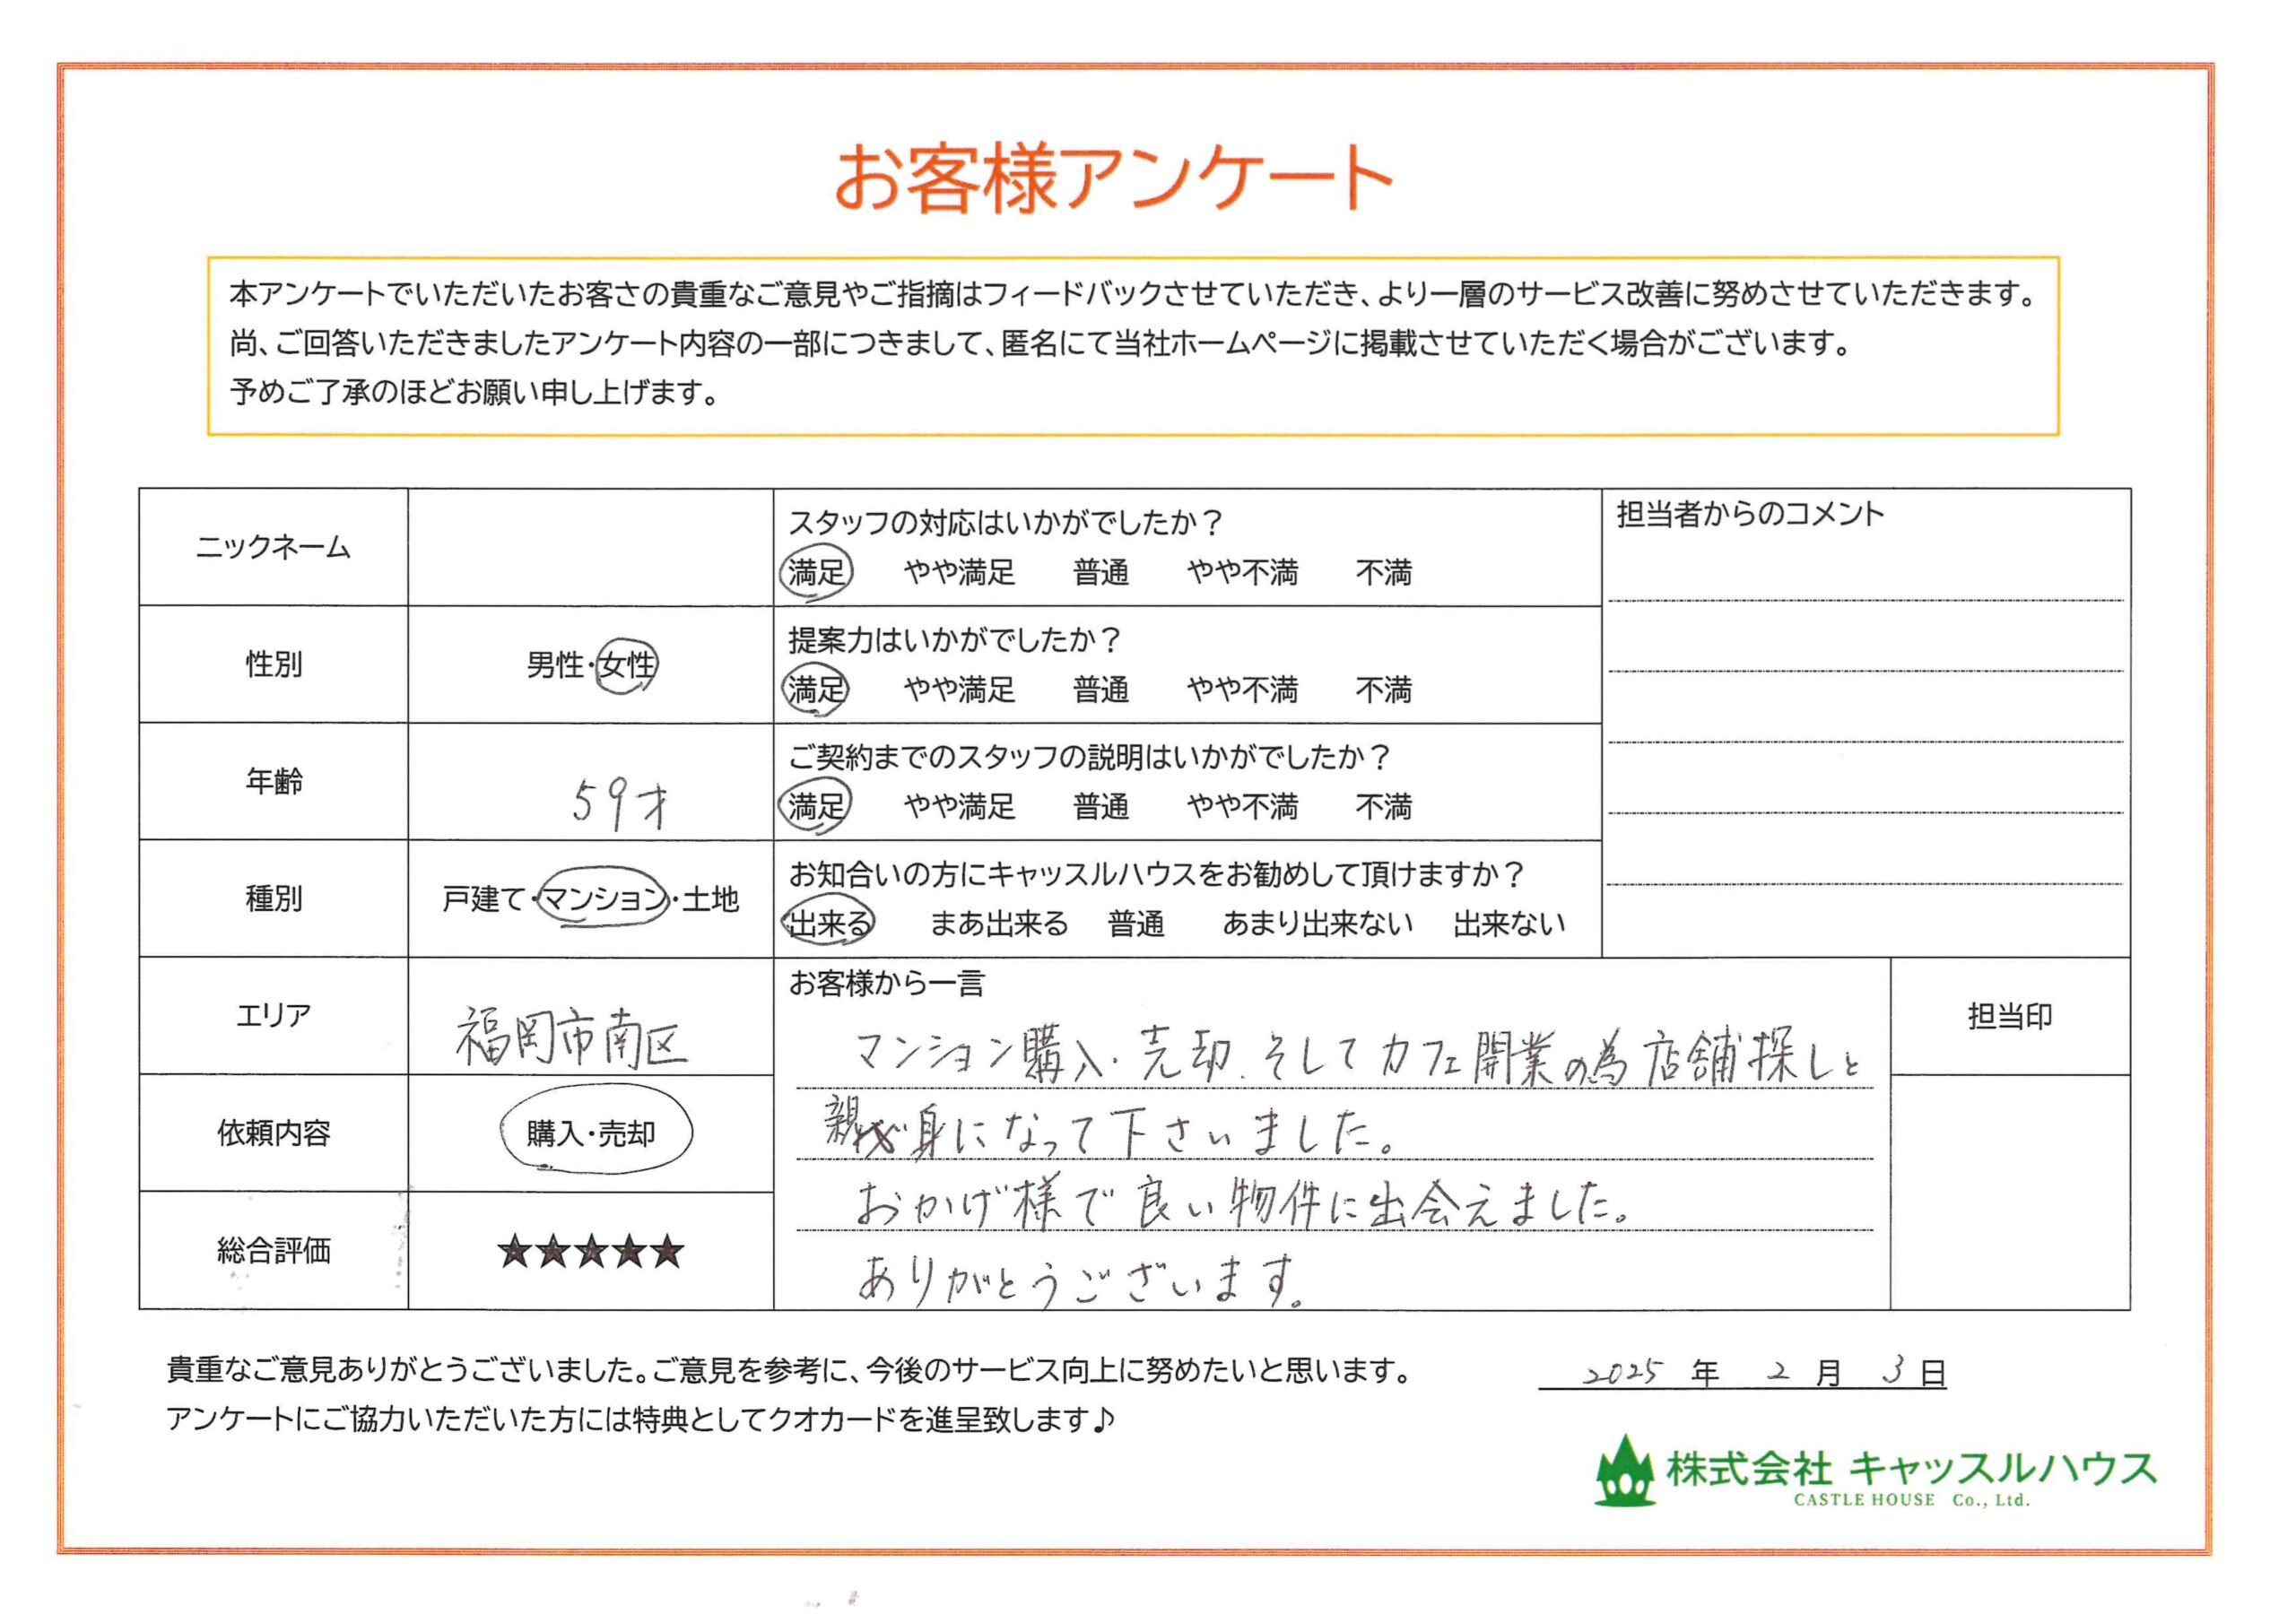 お客様アンケート
本アンケートでいただいたお客さの貴重なご意見やご指摘はフィードバックさせていただき、より一層のサービス改善に努めさせていただきます。
尚、ご回答いただきましたアンケート内容の一部につきまして、匿名にて当社ホームページに掲載させていただく場合がございます。
予めご了承のほどお願い申し上げます。
ニックネーム
性別
男性・女性
年齢
59才
種別
戸建て・マンション・土地
エリア
福岡市南区
依頼内容
購入・売却
総合評価
★★★★★
スタッフの対応はいかがでしたか？
満足 やや満足 普通 やや不満 不満
提案力はいかがでしたか？
満足 やや満足 普通 やや不満 不満
ご契約までのスタッフの説明はいかがでしたか？
満足 やや満足 普通 やや不満 不満
お知合いの方にキャッスルハウスをお勧めして頂けますか？
出来る まあ出来る 普通 あまり出来ない 出来ない
担当者からのコメント
お客様から一言
マンション購入・売却、そしてカフェ開業の為店舗探しと
親身になって下さいました。
おかげ様で良い物件に出会えました。
ありがとうございます。
担当印
貴重なご意見ありがとうございました。ご意見を参考に、今後のサービス向上に努めたいと思います。
アンケートにご協力いただいた方には特典としてクオカードを進呈致します♪
2025 年 2 月 3 日
株式会社 キャッスルハウス
CASTLE HOUSE Co., Ltd.